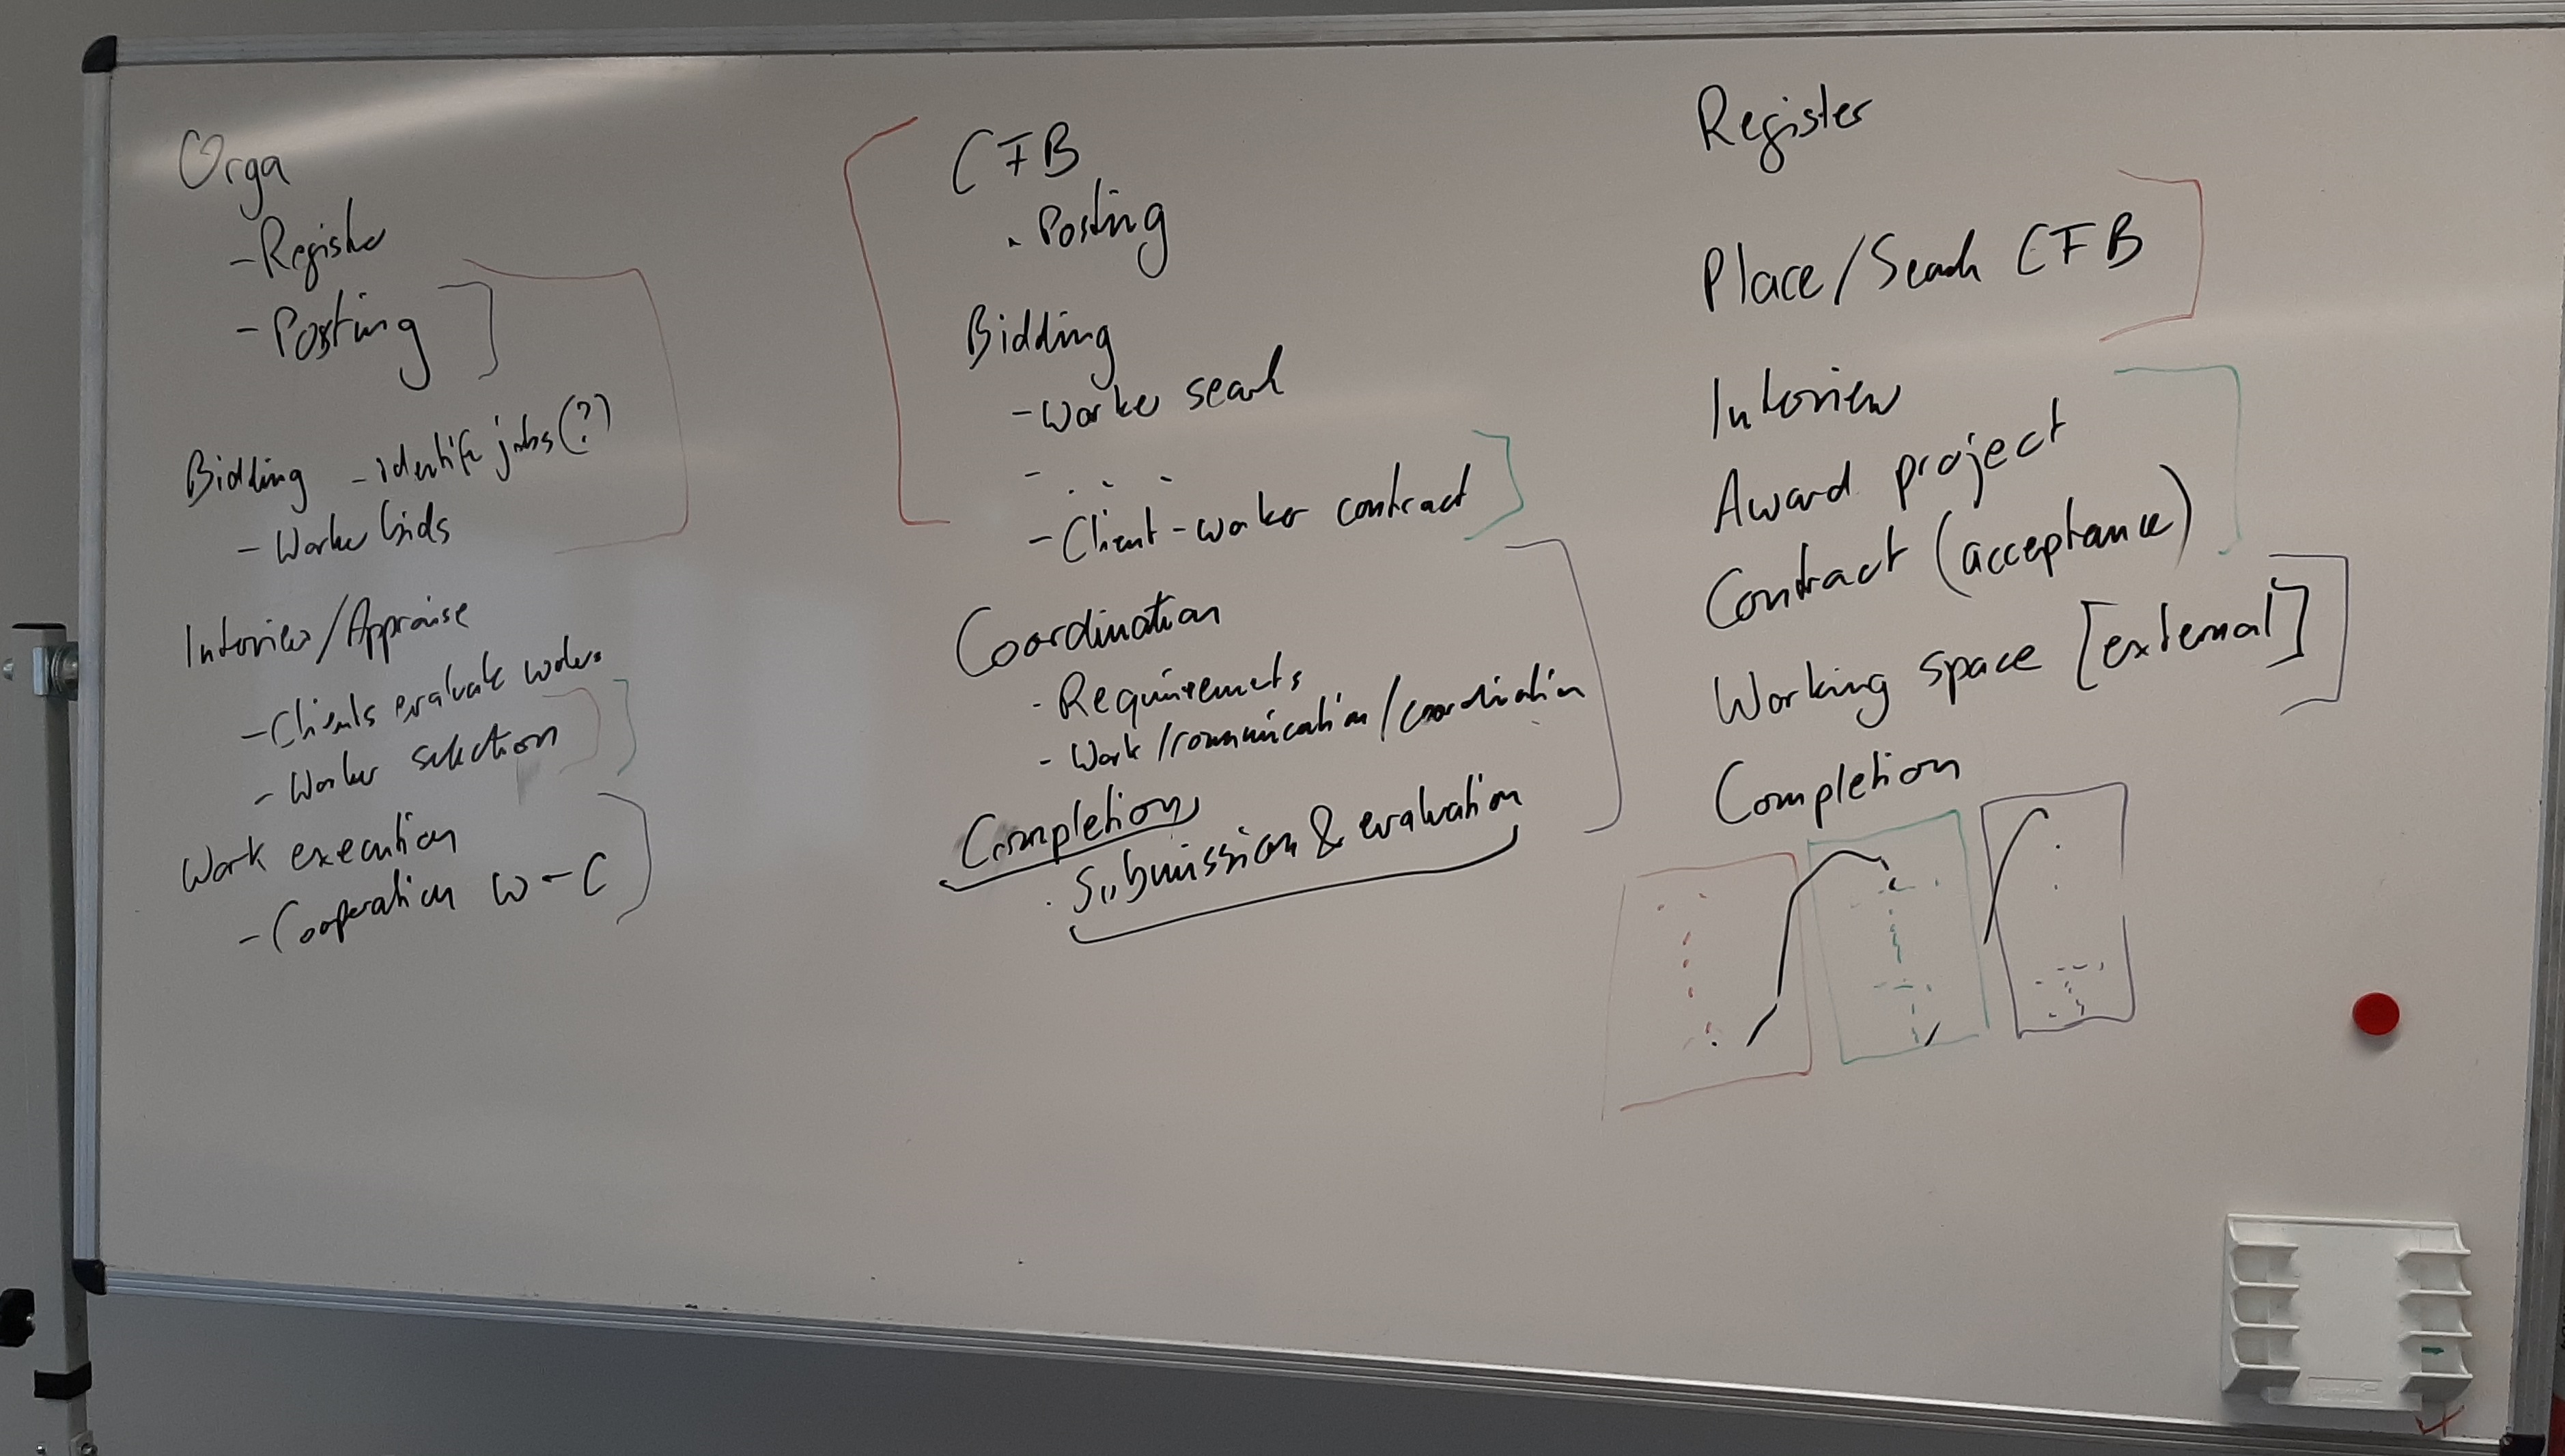 Orga
- Register
- Posting
Bidding - identify jobs (?)
- Worker bids
Interview/Appraise
- Clients evaluate workers
- Worker selection
Work execution
- Cooperation W - C
CFB
. Posting
Bidding
- Worker search
- . . .
- Client-worker contract
Coordination
- Requirements
- Work/communication/coordination
Completion
. Submission & evaluation
Register
Place/Search CFB
Interview
Award project
Contract (acceptance)
Working space [external]
Completion